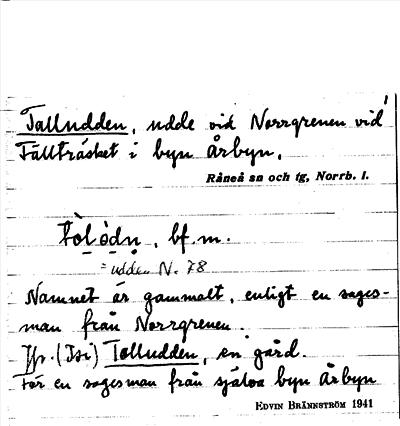 Talludden, udde vid Norrgrenen vid
Fällträsket i byn Årbyn.
Råneå sn och tg, Norrb. l.
tòl òdn, bf. m.
= udden N. 78
Namnet är gammalt, enligt en sages-
man från Norrgrenen.
Jfr. (Isi) Talludden, en gård.
För en sagesman från själva byn Årbyn
EDVIN BRÄNNSTRÖM 1941